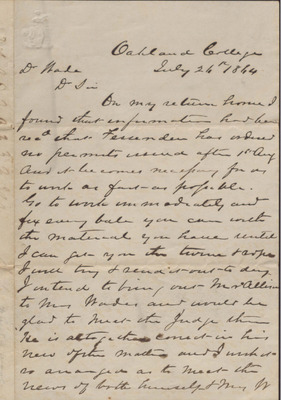 Oakland College
Dr Wade July 24th 1864
Dr Sir
On my return home I
found that information had been
recd that Fessenden has ordered
no permits issued after 1st Aug
And it becomes necessary for us
to work as fast as possible.
Go to work immediately and
fix every bale you can with
the material you have until
I can get you the twine & rope
I will try & send it out to day
I intend to bring out Mr Allison
to Mrs Wades and would be
glad to meet the Judge there
He is altogether correct in his
view of the matter and I wish it
so arranged as to meet the
views of both himself & Mrs W